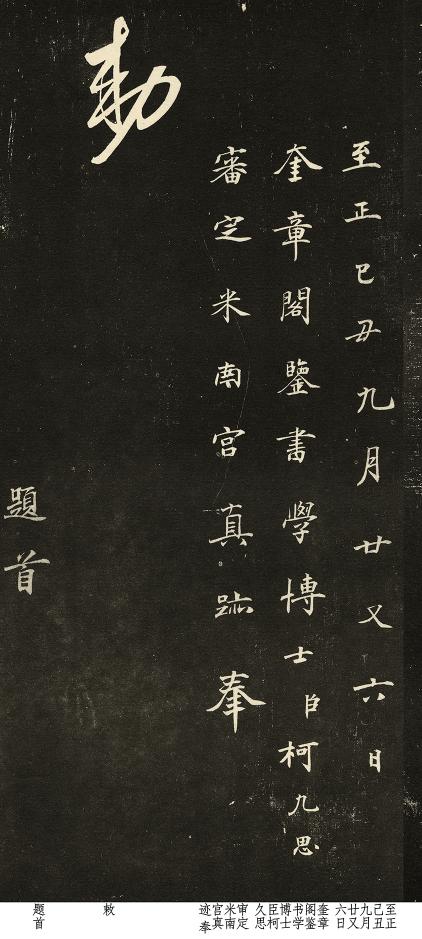 至正己丑九月廿又六日
奎章閣鑒書學博士臣柯九思
審定米南宮真跡奉
勅
題首
至正己丑九月廿又六日
奎章阁鉴书学博士臣柯久思
审定米南宫真迹奉
敕
题首